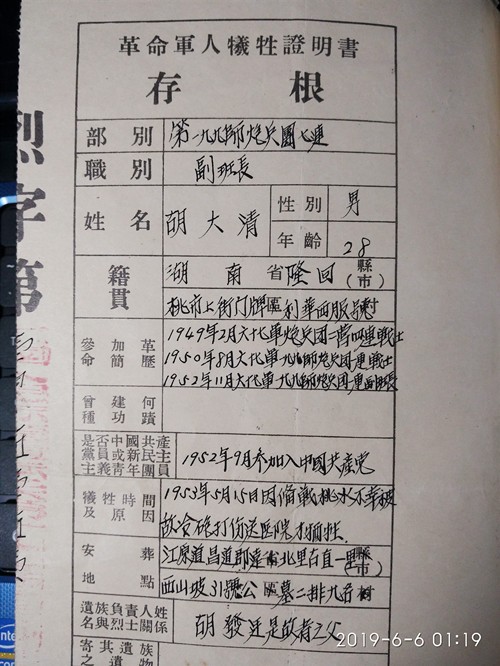 革命軍人犧牲證明書
存根
部別 第一九九師炮兵團七連
職別 副班長
姓名 胡大清
性別 男
年齡 28
籍貫 湖南省隆回(縣市)
桃市上街门牌區利華西服號村
參加革命簡歷 1949年2月六七军炮兵团一营四連戰士
1950年8月六七军一九九師炮兵团連戰士
1952年11月六七军一九九師炮兵团連副班長
曾建何種功蹟
是否中國共產黨員或新民主主義青年團員 1952年9月参加入中國共産党
犧牲時間及原因 1953年5月15日因備戰桃水不幸被
敌冷砲打伤送医院才牺牲.
安葬地點 江原道昌道郡遠南北里右直一里(縣市)
西山坡31號公區墓二排九号村
遺族負責人姓名與烈士關係 胡發 是故者之父
寄其遺族之遺物
烈字第
intel
2019-6-6 01:19